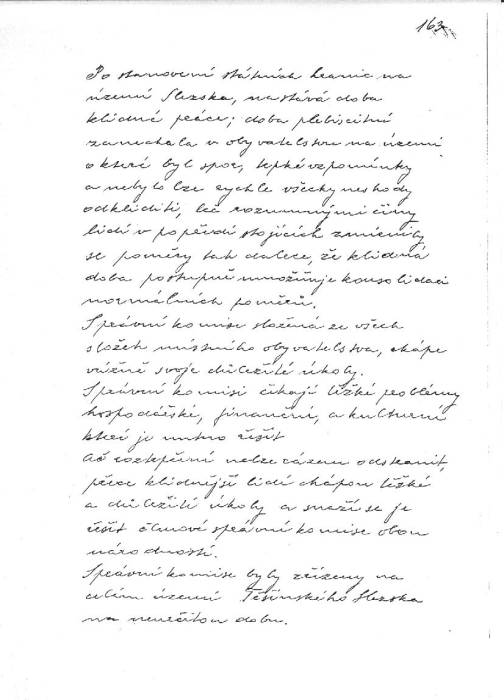 163
Po stanovení státních hranic na
území Slezska, nastává doba
klidné práce; doba plebiscitní
zanechala v obyvatelstvu na území
o které byl spor, trpké vzpomínky
a nebylo lze rychle všecky neshody
odkliditi, leč rozumnými činy
lidí v popředí stojících změnily
se poměry tak dalece, že klidná
doba postupně umožňuje konsolidaci
normálních poměrů.
Správní komise složená ze všech
složek místního obyvatelstva, chápe
vážně svoje důležité úkoly.
Správní komisi čekají těžké problémy
hospodářské, finanční, a kulturní
které je nutno řešit
Ač roztepření nelze rázem odstranit,
přece klidnější lidé chápou těžké
a důležité úkoly a snaží se je
řešit členové správní komise obou
národností.
Správní komise byly zřízeny na
celém území Těšínského Slezska
na neurčitou dobu.